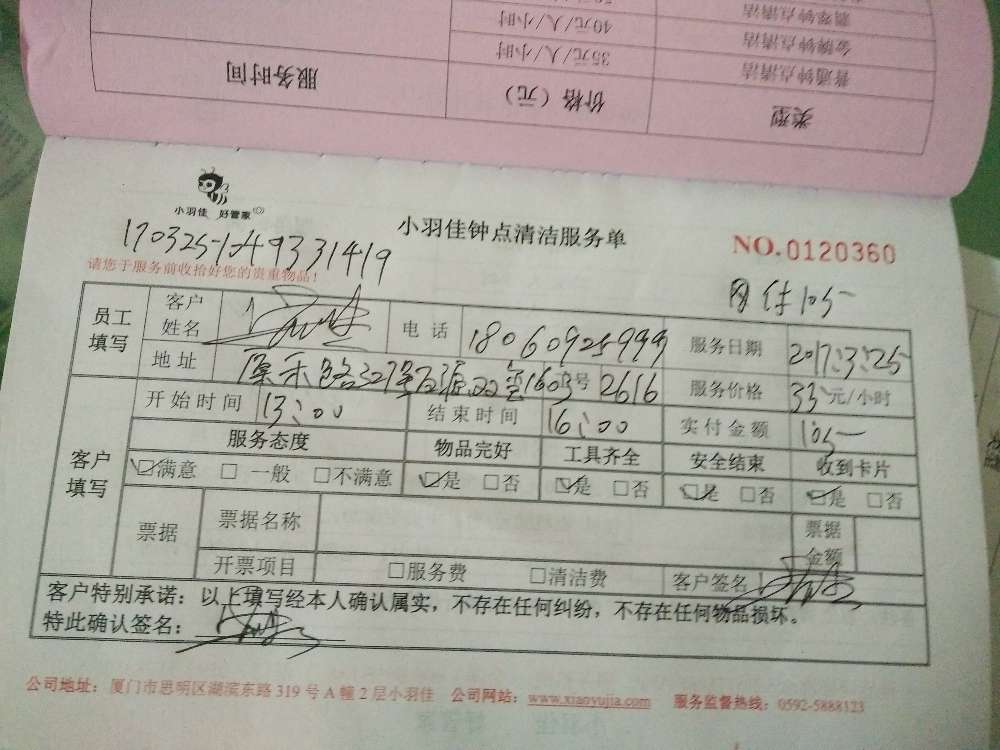 服务时间 价格（元） 类型
35元/人/小时 普通钟点清洁
40元/人/小时 金牌钟点清洁
翡翠钟点清洁
小羽佳 好管家
小羽佳钟点清洁服务单
NO.0120360
请您于服务前收拾好您的贵重物品！
员工填写 客户姓名 电话 18060925999 服务日期 2017.3.25
地址 号 2616 服务价格 元/小时
客户填写 开始时间 13:00 结束时间 16:00 实付金额 105
服务态度 物品完好 工具齐全 安全结束 收到卡片
☑满意 □一般 □不满意 ☑是 □否 ☑是 □否 ☑是 □否 ☑是 □否
票据 票据名称 票据金额
开票项目 □服务费 □清洁费 客户签名
客户特别承诺：以上填写经本人确认属实，不存在任何纠纷，不存在任何物品损坏。
特此确认签名：
公司地址：厦门市思明区湖滨东路319号A幢2层小羽佳 公司网站：www.xiaoyujia.com 服务监督热线：0592-5888123